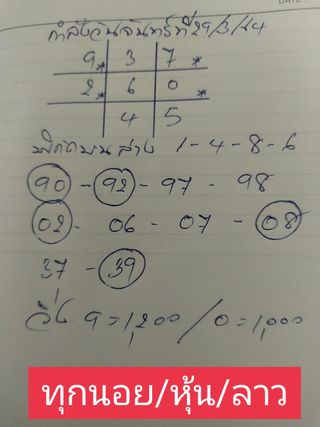 กำลังวันจันทร์ที่ 29/3/64
9* | 3 | 7*
2* | 6 | 0*
4 | 5
บน ล่าง 1-4-8-6
90 - 92 - 97 - 98
02 - 06 - 07 - 08
37 - 39
วิ่ง 9=1,200 / 0=1,000
ทุกนอย/หุ้น/ลาว